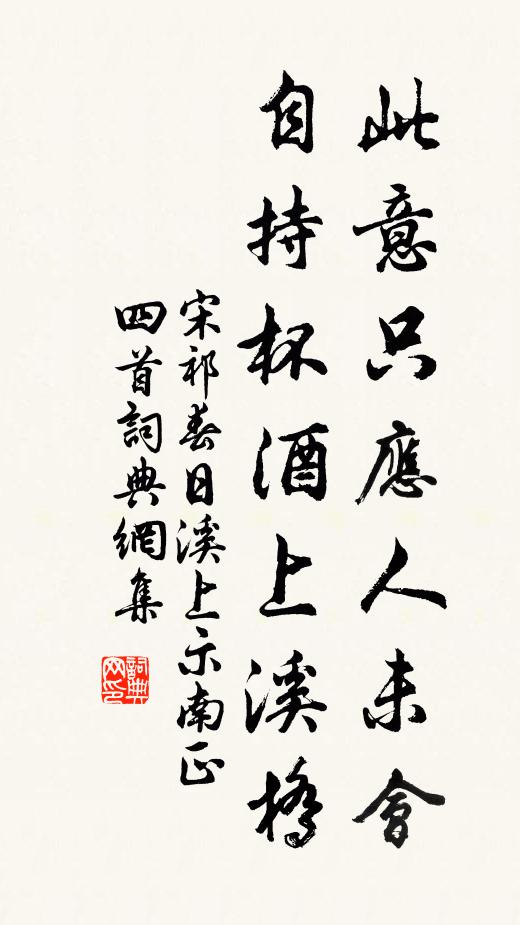 此意只應人未會
自持杯酒上溪橋
宋祁春日溪上示南正
四首詞典網集
詞典网印